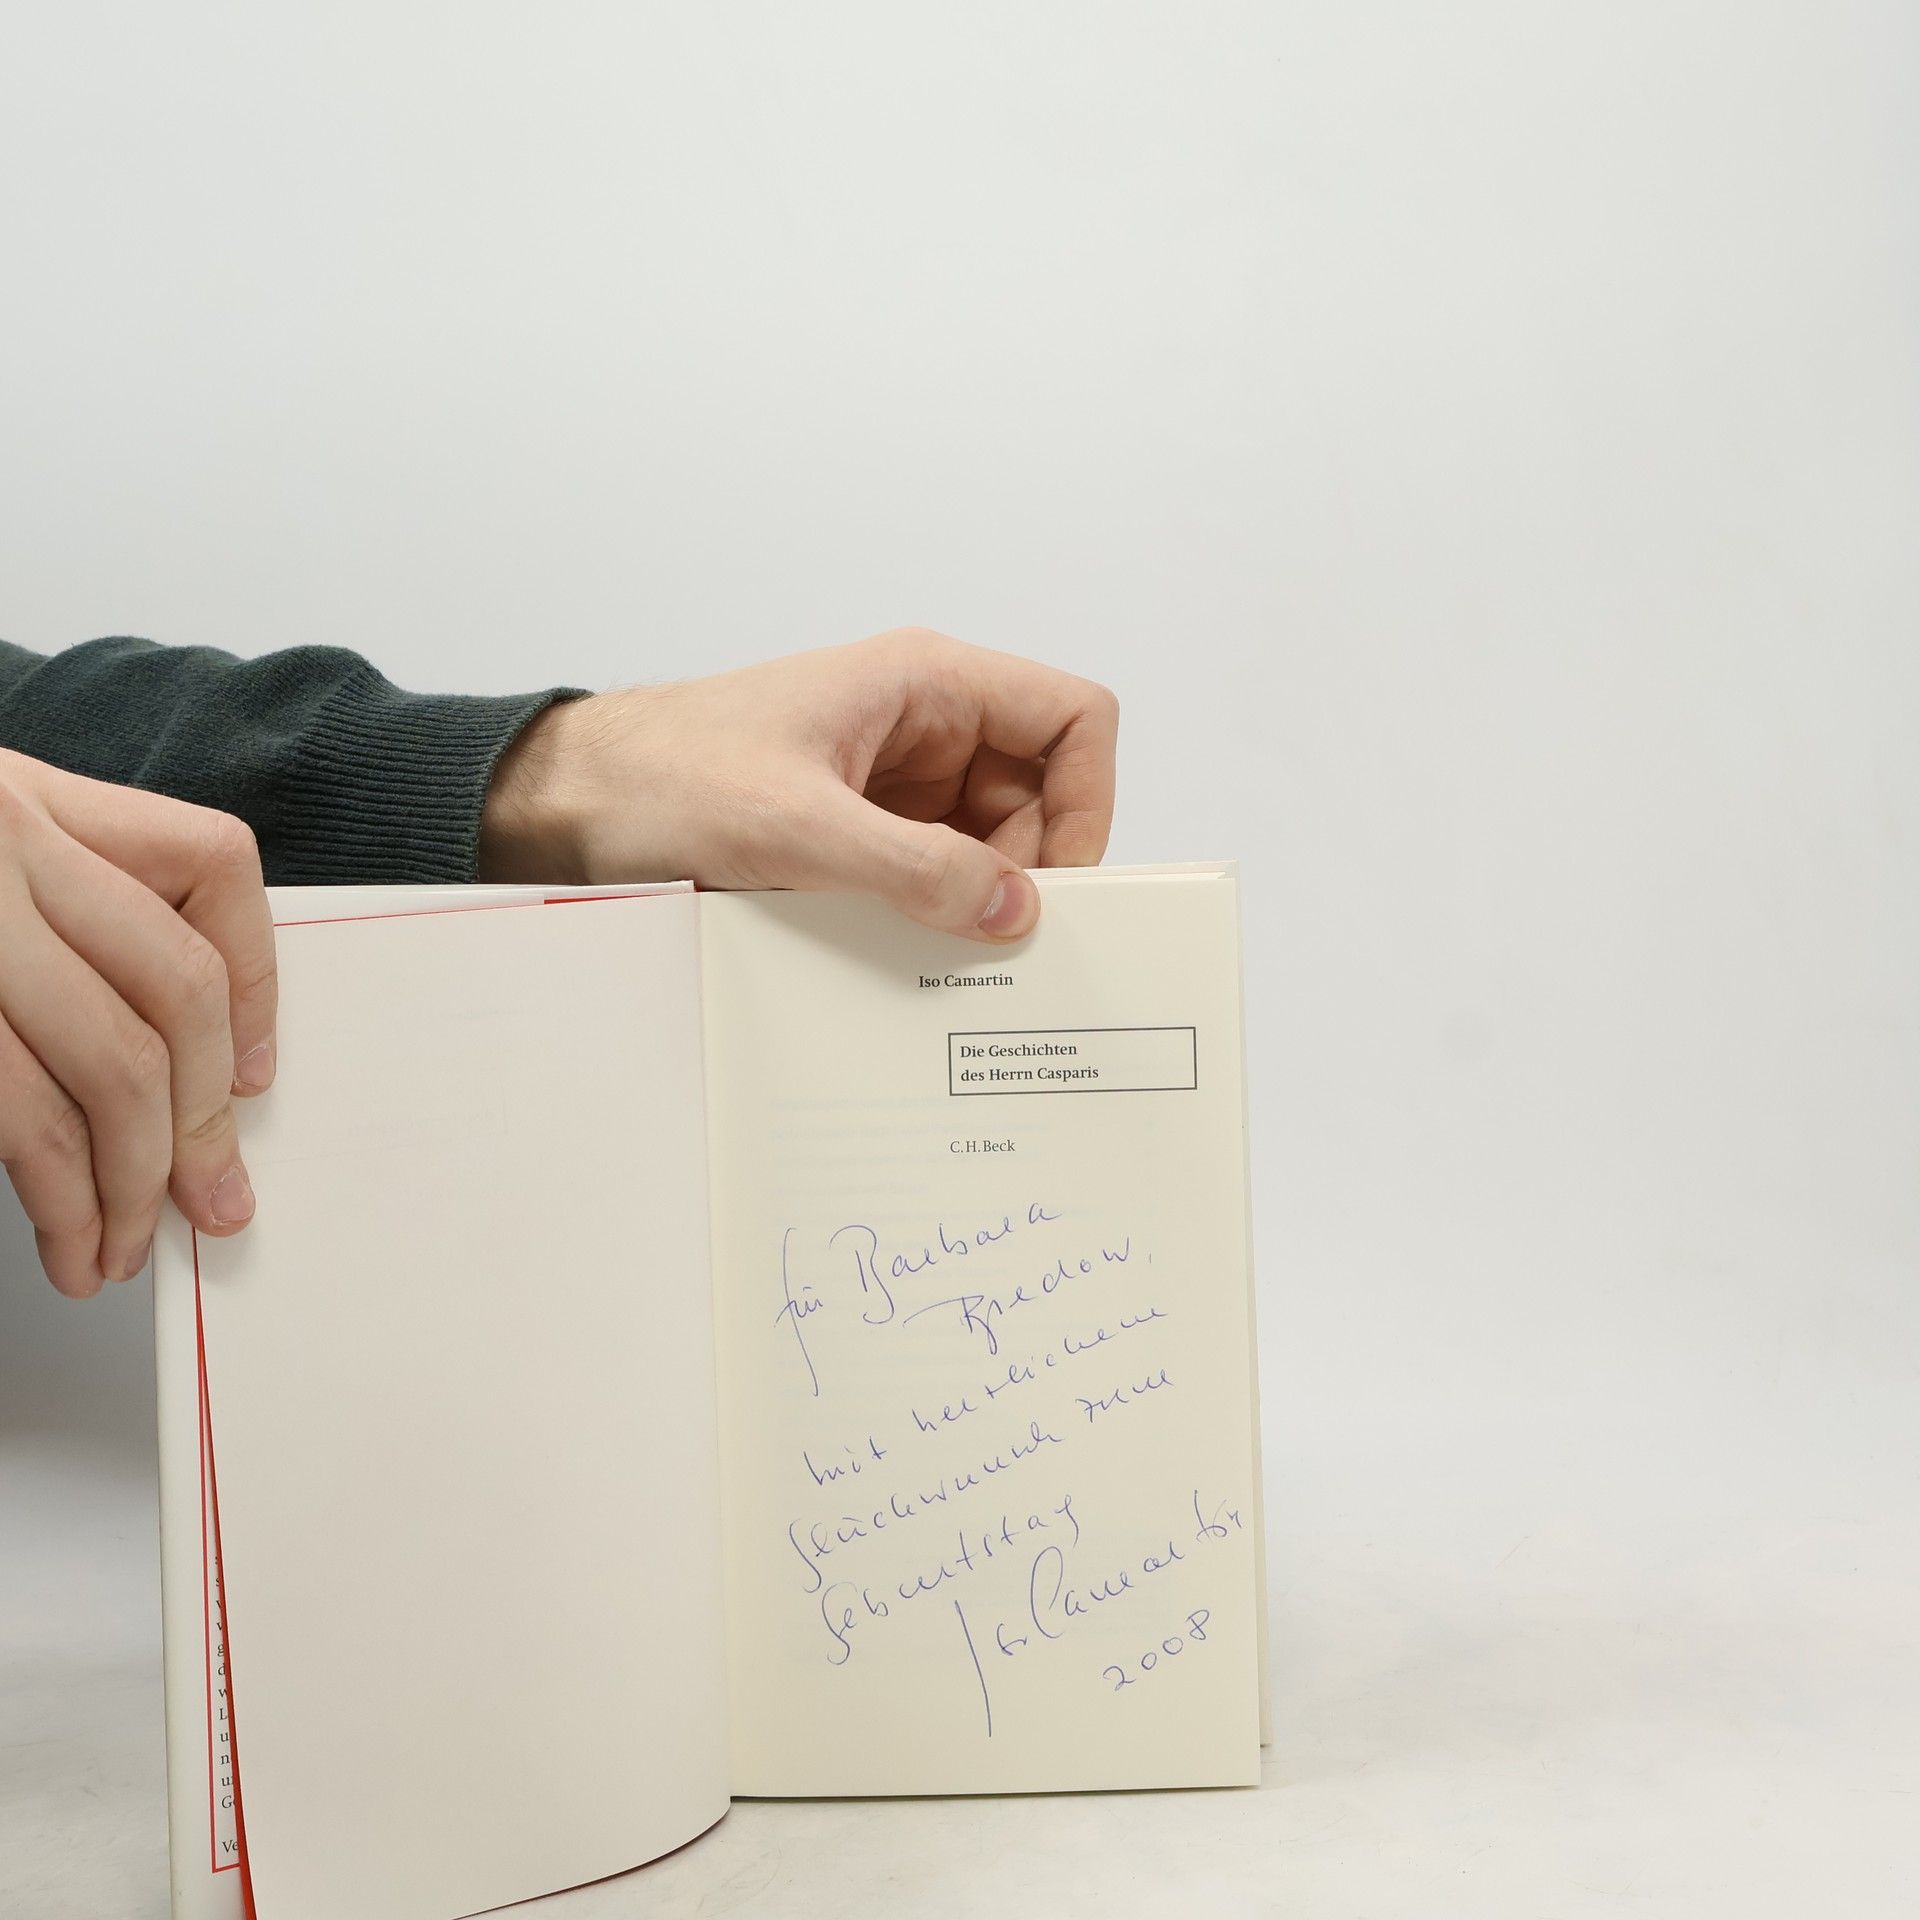 Iso Camartin
Die Geschichten
des Herrn Casparis
C.H.Beck
für Barbara
Bredow,
mit herzlichem
Glückwunsch zum
Geburtstag
Iso Camartin
2008